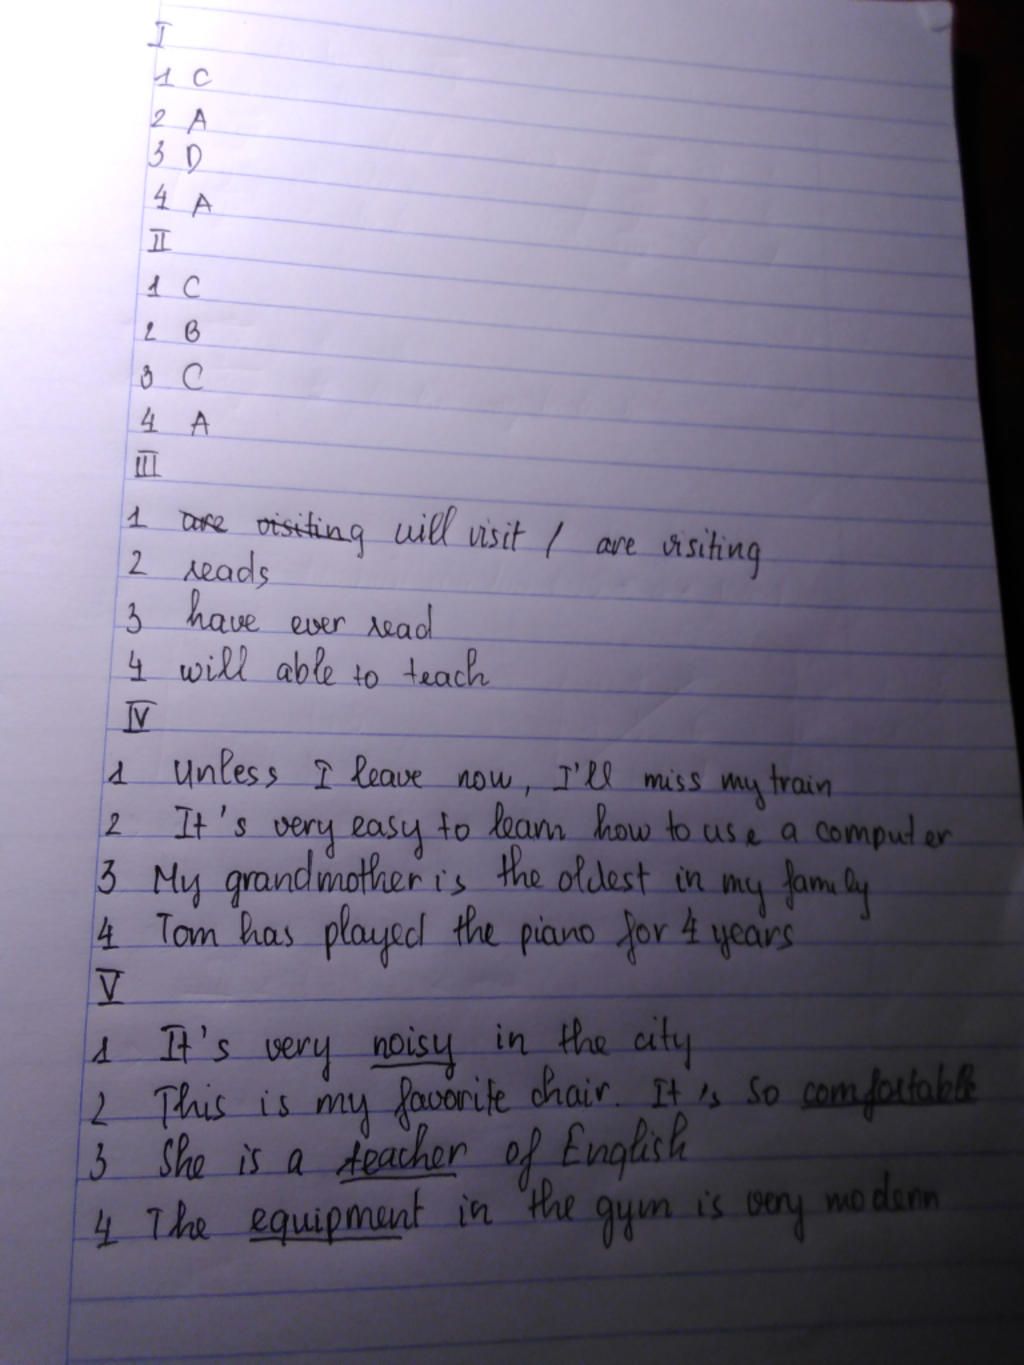 I
1 C
2 A
3 D
4 A
II
1 C
2 B
3 C
4 A
III
1 are visiting will visit / are visiting
2 reads
3 have ever read
4 will able to teach
IV
1 Unless I leave now, I'll miss my train
2 It's very easy to learn how to use a computer
3 My grandmother is the oldest in my family
4 Tom has played the piano for 4 years
V
1 It's very noisy in the city
2 This is my favorite chair. It's so comfortable
3 She is a teacher of English
4 The equipment in the gym is very modern